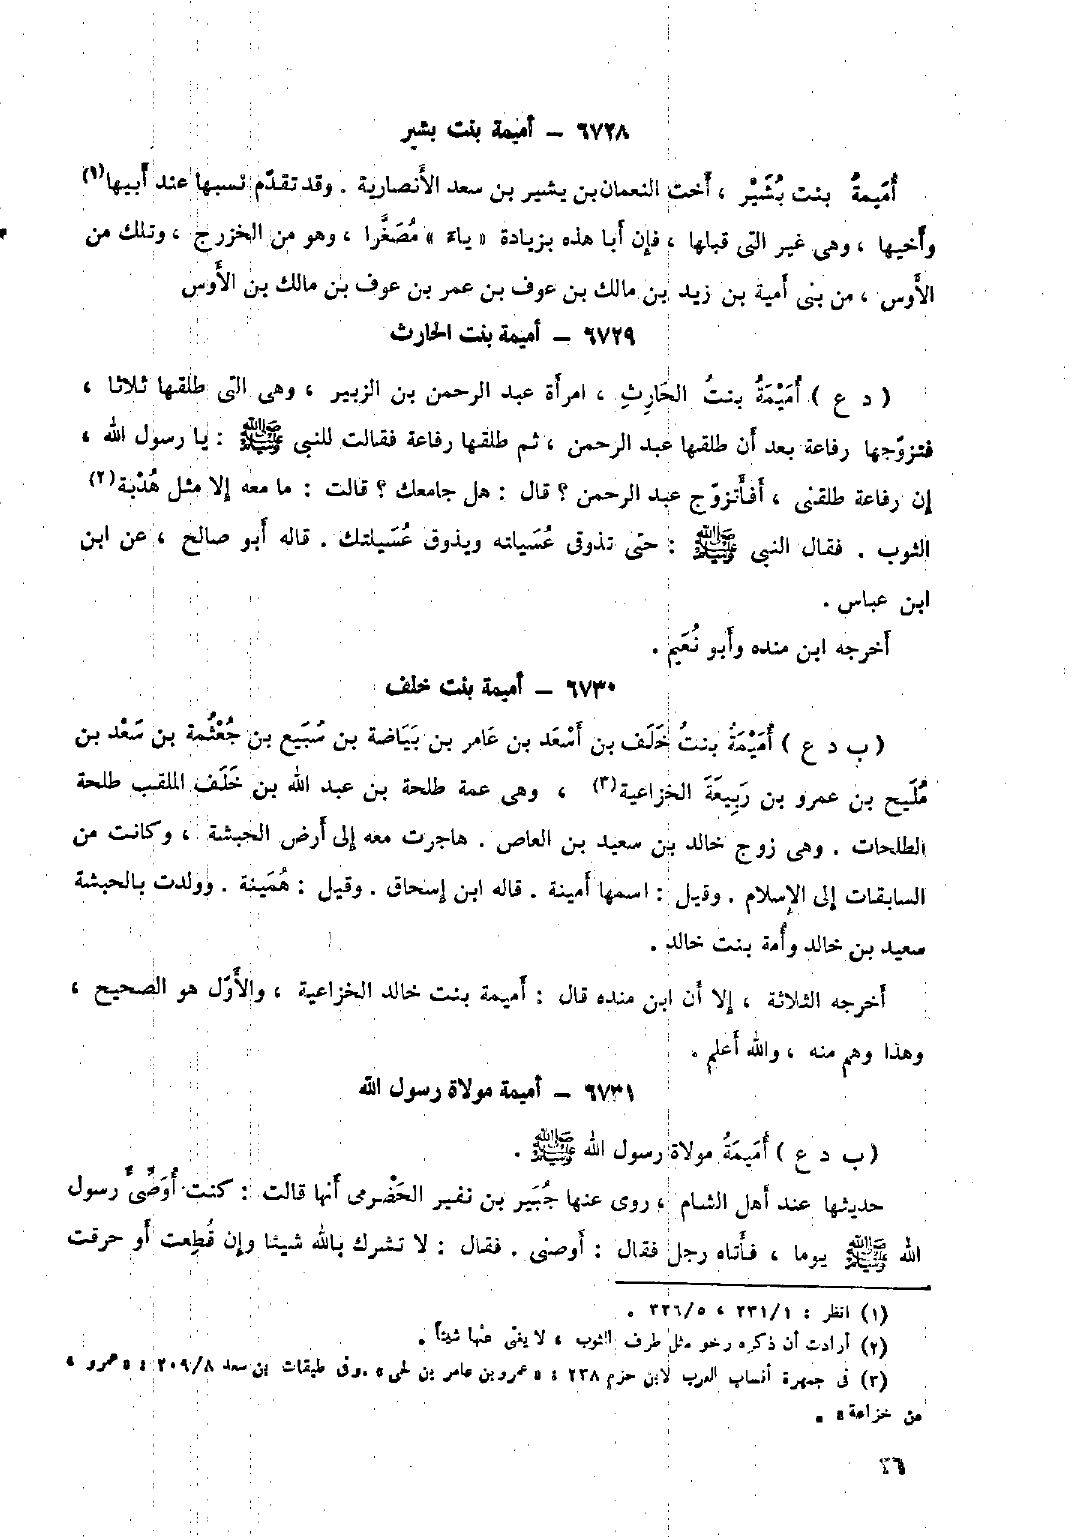 ٦٧٢٨ — أميمة بنت بشير
أُمَيمةُ بنت بُشَيْر ، أَخت النعمان بن بشير بن سعد الأَنصارية . وقد تقدّم نسبها عند أَبيها(١)
وأَخيها ، وهى غير التى قبلها ، فإن أَبا هذه بزيادة « ياءَ » مُصَغَّرا ، وهو من الخزرج ، وتلك من
الأَوس ، من بنى أمية بن زيد بن مالك بن عوف بن عمر بن عوف بن مالك بن الأَوس
٦٧٢٩ — أميمة بنت الحارث
( د ع ) أُمَيْمَةُ بنتُ الحَارِثِ ، امرأَة عبد الرحمن بن الزبير ، وهى التى طلقها ثلاثا ،
فتزوّجها رفاعة بعد أَن طلقها عبد الرحمن ، ثم طلقها رفاعة فقالت للنبى ﷺ : يا رسول الله ،
إن رفاعة طلقنى ، أَفأَتزوّج عبد الرحمن ؟ قال : هل جامعك ؟ قالت : ما معه إلا مثل هُدْبة(٢)
الثوب . فقال النبى ﷺ : حتى تذوقى عُسَيلته ويذوق عُسَيلتك . قاله أَبو صالح ، عن ابن
ابن عباس .
أَخرجه ابن منده وأَبو نُعَيم .
٦٧٣٠ — أميمة بنت خلف
( ب د ع ) أُمَيْمَةُ بنتُ خَلَف بن أَسْعَد بن عَامر بن بَيَاضة بن سُبَيع بن جُعْثُمة بن سَعْد بن
مُلَيح بن عمرو بن رَبِيعَةَ الخزاعية(٣) ، وهى عمة طلحة بن عبد الله بن خَلَف الملقب طلحة
الطلحات . وهى زوج خالد بن سعيد بن العاص . هاجرت معه إلى أَرض الحبشة ، وكانت من
السابقات إلى الإِسلام . وقيل : اسمها أَمينة . قاله ابن إسحاق . وقيل : هُمَينة . وولدت بالحبشة
سعيد بن خالد وأُمة بنت خالد .
أَخرجه الثلاثة ، إلا أَن ابن منده قال : أَميمة بنت خالد الخزاعية ، والأَوّل هو الصحيح ،
وهذا وهم منه ، والله أَعلم .
٦٧٣١ — أميمة مولاة رسول الله
( ب د ع ) أُمَيمَةُ مولاة رسول الله ﷺ .
حديثها عند أهل الشام ، روى عنها جُبَير بن نفير الحَضْرمى أَنها قالت : كنت أُوَضِّىُّ رسول
الله ﷺ يوما ، فأَتاه رجل فقال : أَوصنى . فقال : لا تشرك بالله شيئا وإن قُطِعت أَو حرقت
(١) انظر : ٢٣١/١ ، ٣٢٦/٥ .
(٢) أرادت أن ذكره رخو مثل طرف الثوب ، لا يغنى عنها شيئاً .
(٣) فى جمهرة أنساب العرب لابن حزم ٢٣٨ : « عمرو بن عامر بن لحى » .وفى طبقات بن سعد ٢٠٩/٨ : « عمرو ،
من خزاعة » .
٢٦